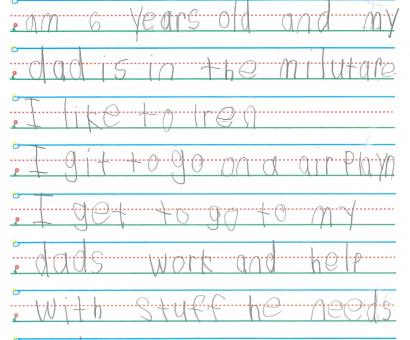 am 6 years old and my
dad is in the milutare
I like to iren
I git to go on a airplayn
I get to go to my
dads work and help
with stuff he needs